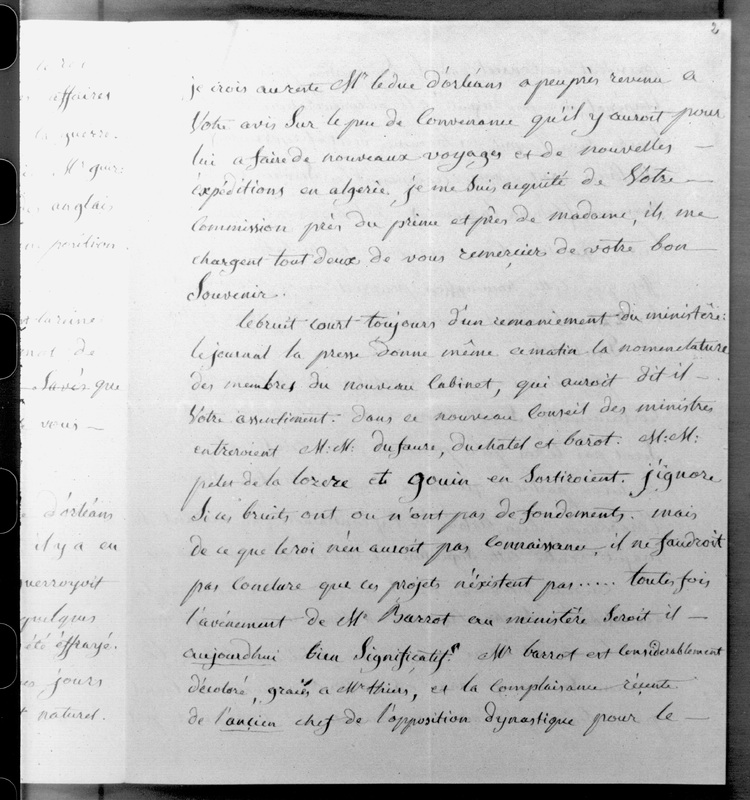 2
je crois au reste Mr le duc d'orléans a peu près revenu a
Votre avis Sur le peu de Convenance qu'il y auroit pour
lui a faire de nouveaux voyages et de nouvelles —
éxpéditions en algerie, je me Suis acquité de Votre —
Commission près du prince et près de madame, ils me
chargent tout deux de vous remercier de votre bon —
Souvenir.
le bruit court toujours d'un remaniement du ministére:
le journal la presse donne même ce matin la nomenclature
des membres du nouveau Cabinet, qui auroit dit il —
Votre assentiment. dans ce nouveau Conseil des ministres
entreroient M: M: dufaure, duchatel et barot. M: M:
pelet de la lozere et gouin en Sortiroient. j'ignore
Si ces bruits ont ou n'ont pas de fondements. mais
de ce que le roi n'en auroit pas Connaissance, il ne faudroit
pas Conclure que ces projets n'éxistent pas ..... toutes fois
l'avénement de Mr Barrot au ministére Seroit il —
aujourdhui bien Significatif? Mr barrot est Considerablement
décoloré, graces a Mr thiers, et la Complaisance récente
de l'ançien chef de l'opposition dynastique pour le —
affaires
la guerre.
anglais
position.
de
Savés que
vous —
d'orléans
il y a eu
guerroyoit
quelques
été éffrayé.
jours
naturel.